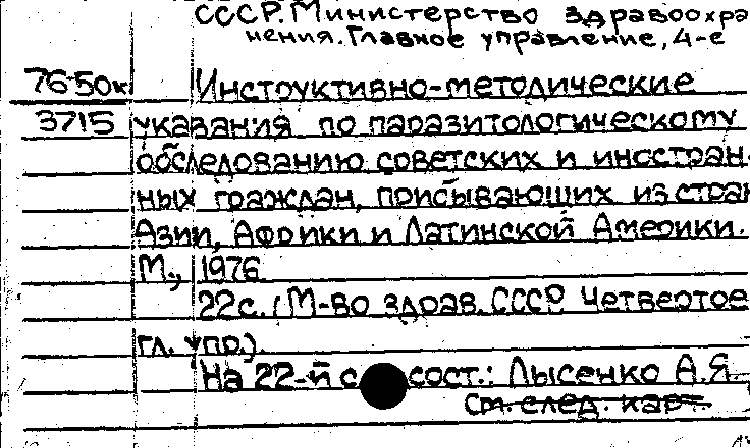 СССР. Министерство здравоохра
нения. Главное управление, 4-е
76-50к Инструктивно-методические
3715 указания по паразитологическому
обследованию советских и иностран
ных граждан, прибывающих из стран
Азии, Африки и Латинской Америки.
М., 1976
22с. (М-во здрав. СССР. Четвертое
гл. упр.)
На 22-й с сост.: Лысенко А.Я.
См. след. карт.